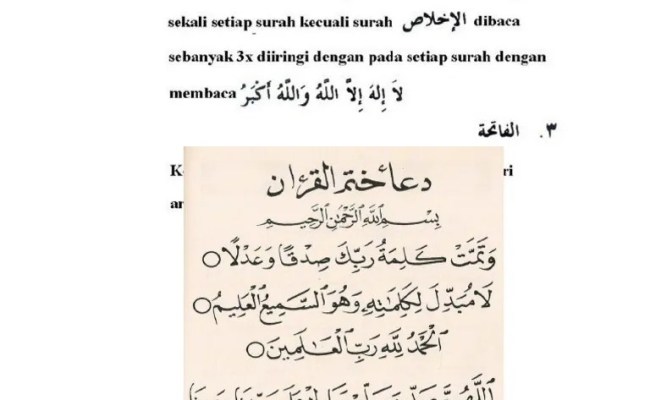 sekali setiap surah kecuali surah الإخلاص dibaca
sebanyak 3x diiringi dengan pada setiap surah dengan
membaca لَا إِلهَ إِلاَّ اللَّهُ وَاللَّهُ أَكْبَرُ
٣. الفاتحة
دعاء ختم القرءان
بِسْمِ اللَّهِ الرَّحْمَٰنِ الرَّحِيمِ
وَتَمَّتْ كَلِمَةُ رَبِّكَ صِدْقًا وَعَدْلًا
لَا مُبَدِّلَ لِكَلِمَاتِهِ وَهُوَ السَّمِيعُ الْعَلِيمُ
الْحَمْدُ لِلَّهِ رَبِّ الْعَالَمِينَ